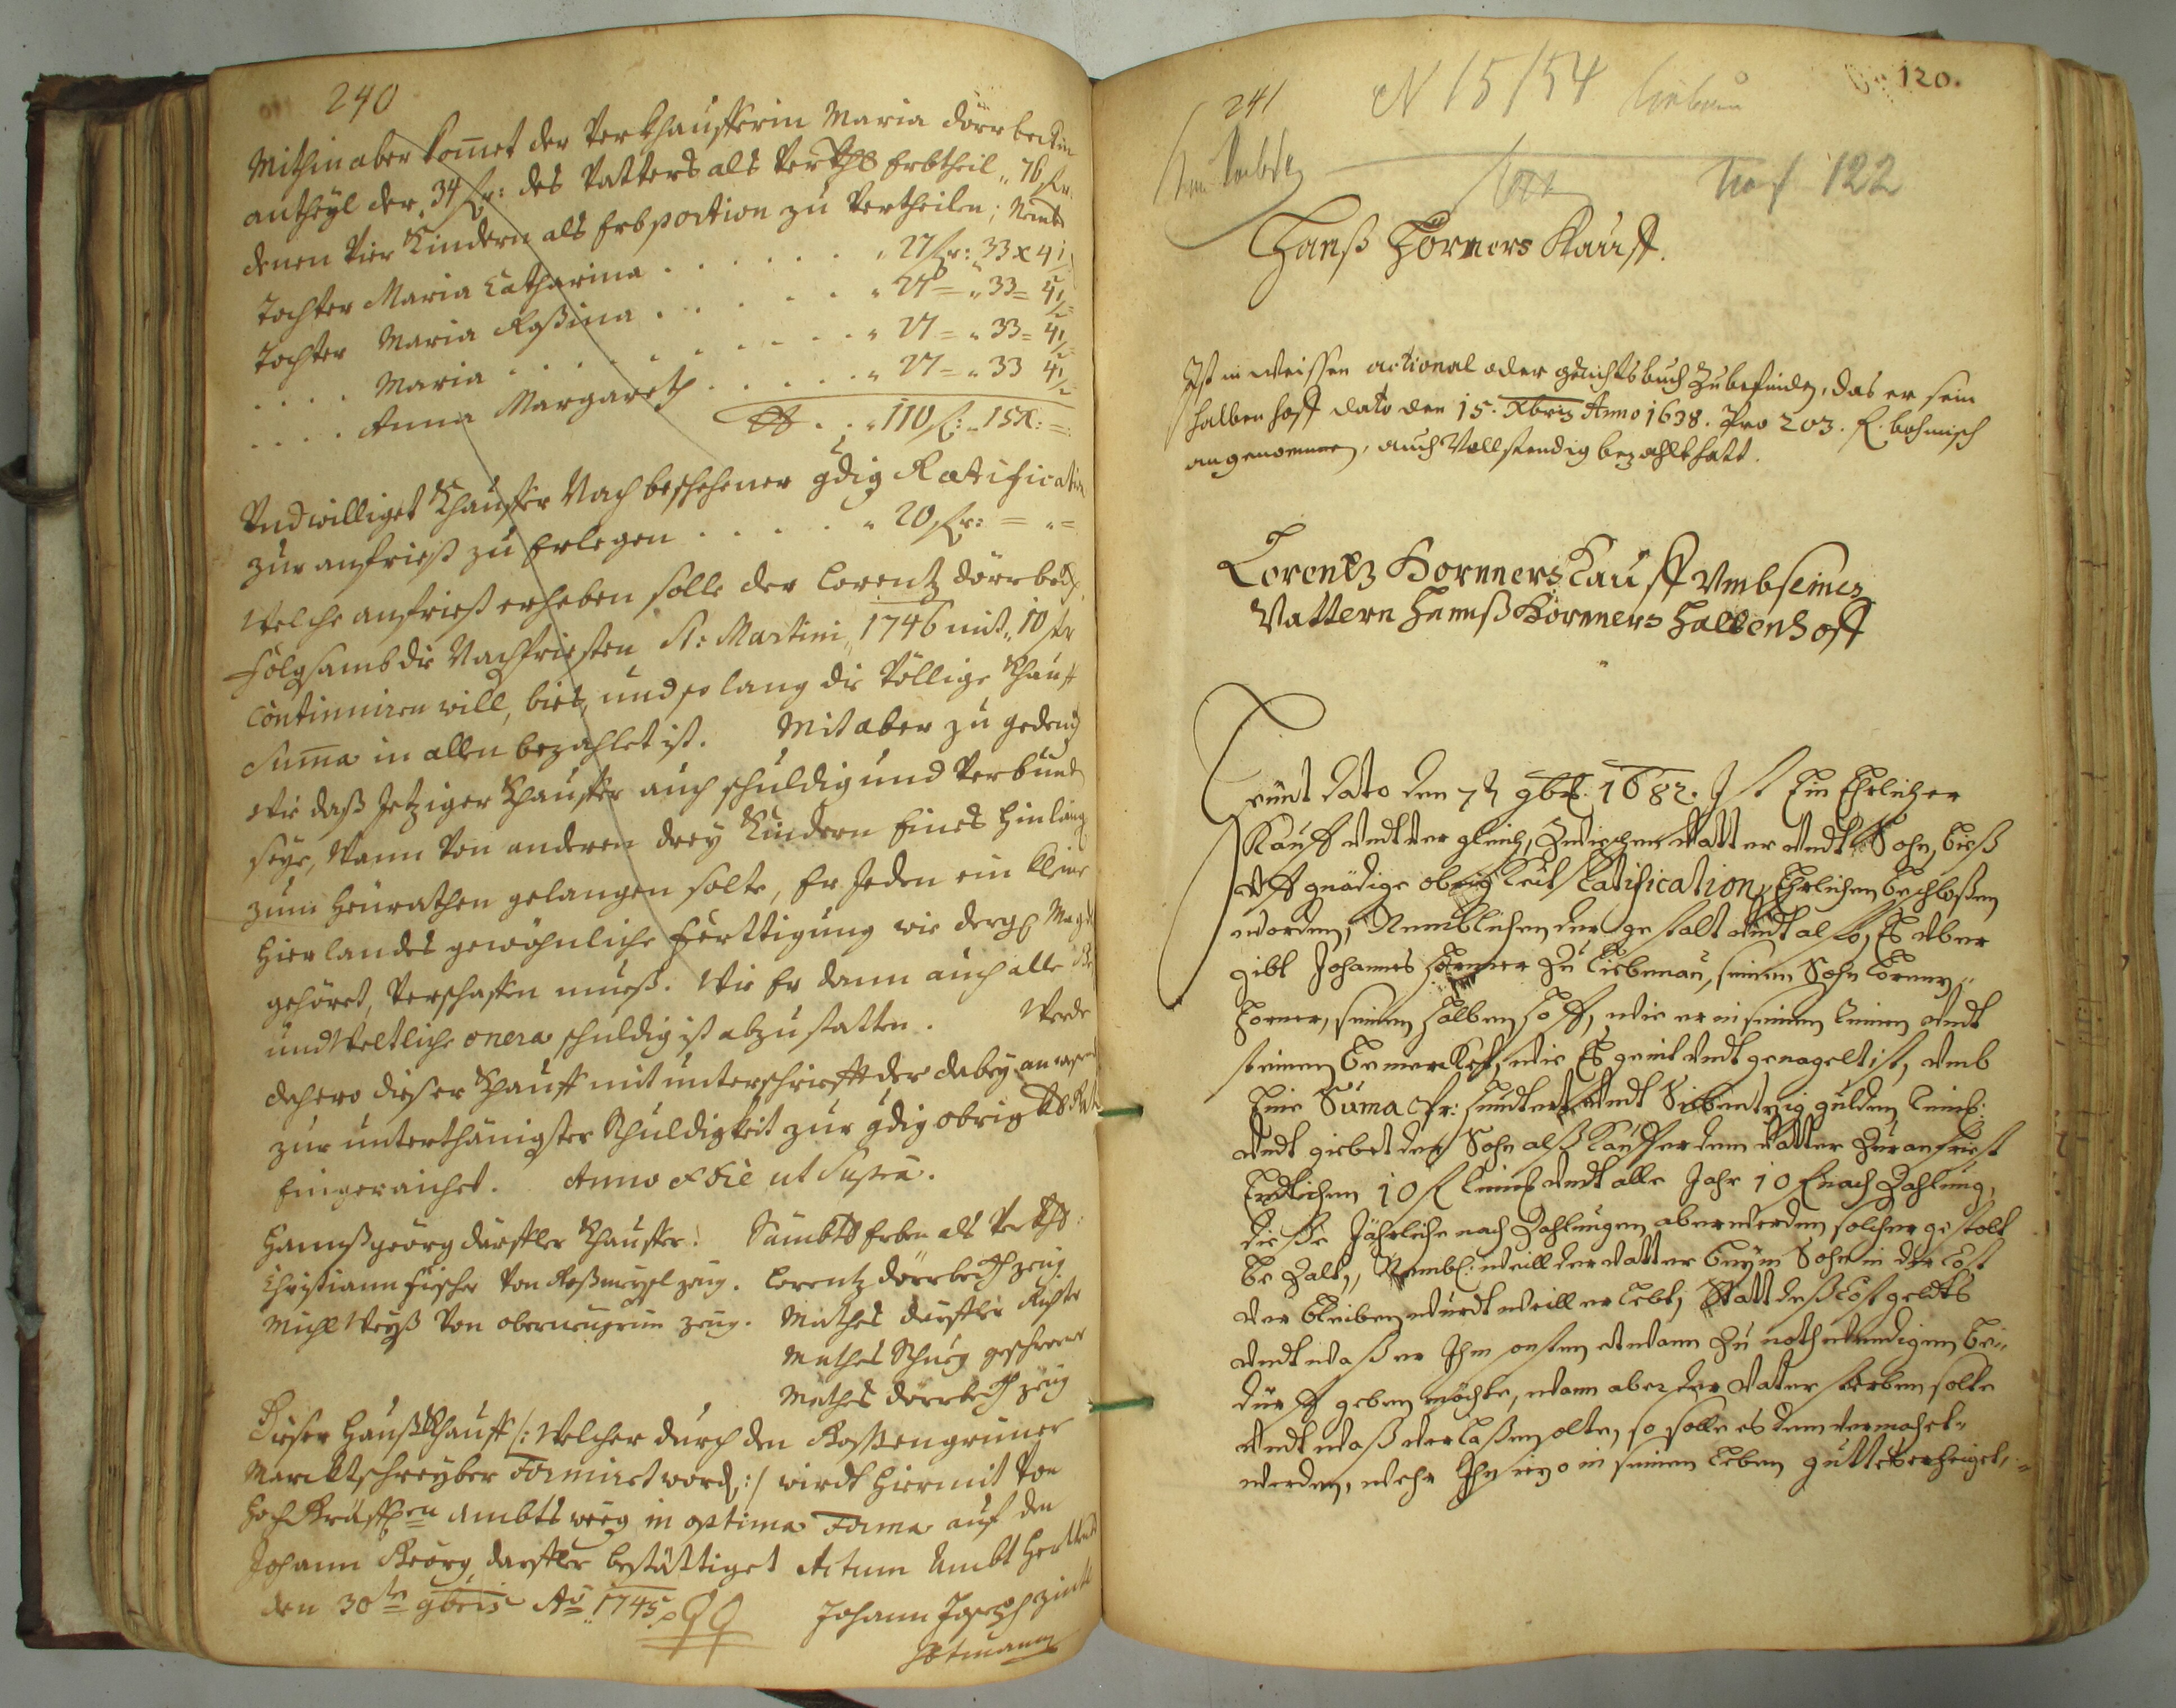 240
Mithin aber kommet der Verkhaufferin Maria dörrbeckin
antheyl der 34 fr: des Vatters als Verkhs Erbtheil „ 76 fr.
denen Vier Kindern als Erbportion zu Vertheilen;
Tochter Maria Catharina . . . . . „ 27 fr: 33 x 4 1/
Tochter Maria Rosina . . . . . „ 27 = „ 33 = 4 1/
. . . . Maria . . . . . . . „ 27 = „ 33 = 4 1/
. . . . Anna Margareth . . . . . „ 27 = „ 33 4 1/
. . „ 110 fl: „ 15 x: =
Und williget Khauffer Nach beschehener gdig Ratification
zur anfrist zu Erlegen . . . . . „ 20 fr: = „ =
Welche anfrist erheben solle der Lorentz dörrbeck,
folgsamb die Nachfristen St: Martini „ 1746 mit „ 10 fr
Continuiren will, biß und so lang die Völlige Khauff
Summa in allen bezahlet ist. Mit aber zu gedenck
wie daß Jetziger Khauffer auch schuldig und Verbund
seye, Wann Von anderen drey Kindern Eines hinläng
zum Heurathen gelangen solte, Er Jeden ein kleine
hier landes gewöhnliche Ferttigung wie dergl
gehöret, Verschaffen mueß. Wie Er dann auch alle
und Weltliche onera schuldig ist abzustatten. Werde
dahero dieser Khauff mit unterschrifft der dabey anwesend
zur unterthänigster Schuldigkeit zur gdig obrigkt
Eingeraichet. Anno et Die ut Supra.
Hannßgeörg darffler Khauffer. Sämbtl Erben als Verkhs:
Christiann Fischer Von Roßmeysl zeug. Lorentz dörrbeckh zeug
Michl Weyß Von oberneugrün zeug. Mathes darffler Richter
Mathes Schug geschworner
Mathes dörrbeckh zeug
Dieser Hauß Khauff /: Welcher durch den Rossengrüner
Marcktschreyber Formiret word :/ wirdt hiermit Von
Hoch Gräffl en Ambts weeg in optima Forma auf den
Johann Georg darffler bestättiget Actum Ambt
den 30 ten 9bris Ao 1745
Johann Joseph
Ambtmann
241 N 15/54 Liebnau 120.
Nro 122
Hanß Hörners Kauff.
Ist in Weissen actional oder gerichtsbuch Zubefinden, das er sein
halben hoff dato den 15. Xbris Anno 1638. Pro 203. fl. bohmisch
angenommen, auch Vollstendig bezahlt hatt.
Lorentz Hornners Kauff Umb seines
Vattern Hannß Hornners Halben Hoff
Heünt dato den 7t 9br. 1682. Ist Ein Ehrlicher
Kauff undt ver gleich, Zwischen Vatter undt Sohn, bieß
auff gnädige obrigkeit Ratification, Ehrlichen beschloßen
worden, Nemblichen der gestalt undt also, Es über
gibt Johannes Hörnner Zu Liebenau, seinem Sohn Lorentz
Hörner, seinen halben hoff, wie er in seinen Reinen undt
steinen bemercket, wie Es geniet undt genagelt ist, umb
Eine Suma pr: hundert undt Siebentzig gulden Reinl:
undt giebet der Sohn alß Kauffer dem Vatter Zur anfrist
Endtlichen 10 fl Reinl undt alle Jahr 10 fl nach Zahlung,
dieße Jährliche nach Zahlungen aber werden solcher gestalt
be Zalt, Nembl: weill der Vatter beÿm Sohn in der Cost
ver bleiben würdt weill er lebt, Statt deß Cost geldts
undt waß er Ihm onsten etwann Zu nothwendigem be-
dürff geben möchte, wann aber der Vater sterben solte
undt waß verlaßen solte, so solle es dem vermacht
werden, welcher Ihm ieyo in seinem leben guttes erzeiget,